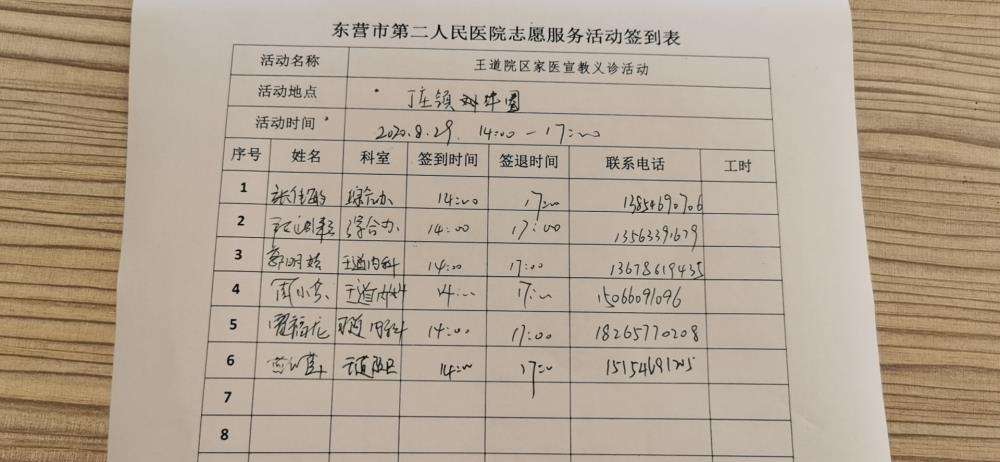 东营市第二人民医院志愿服务活动签到表
活动名称 王道院区家医宣教义诊活动
活动地点 丁庄镇
活动时间 2020.8.29. 14:00 — 17:00
序号 姓名 科室 签到时间 签退时间 联系电话 工时
1 综合办 14:00 17:00 13854690706
2 综合办 14:00 17:00 13563391679
3 郭明姣 王道内科 14:00 17:00 13678619435
4 周小芬 王道内科 14:00 17:00 15066091096
5 王道内科 14:00 17:00 18265770208
6 14:00 17:00
7
8